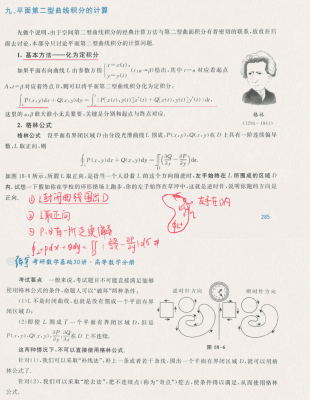 九、平面第二型曲线积分的计算
先做个说明,由于空间第二型曲线积分的经典计算方法与第二型曲面积分有着密切的联系,故放在后面去讨论,本部分只讨论平面第二型曲线积分的计算问题.
1. 基本方法——化为定积分
如果平面有向曲线 L 由参数方程 { x=x(t), y=y(t) (t:α→β) 给出,其中 t=α 对应着起点
A,t=β 对应着终点 B,则可以将平面第二型曲线积分化为定积分:
∫ P(x,y)dx+Q(x,y)dy=∫ {P[x(t),y(t)]x'(t)+Q[x(t),y(t)]y'(t)}dt,
这里的 α,β 谁大谁小无关紧要,关键是分别和起点与终点对应.
格林
(1793—1841)
2. 格林公式
格林公式 设平面有界闭区域 D 由分段光滑曲线 L 围成,P(x,y),Q(x,y) 在 D 上具有一阶连续偏导数,L 取正向,则
∮ P(x,y)dx+Q(x,y)dy=∬(∂Q/∂x-∂P/∂y)dσ.
如图 18-6 所示,所谓 L 取正向,是指当一个人沿着 L 的这个方向前进时,左手始终在 L 所围成的区域 D
内,试想一下假如你在学校的环形操场上跑步,你的左手始终在草坪中,这就是逆时针,说明你跑的方向是
正向.
① L封闭曲线围出D
② L取正向
③ P、Q有一阶连续偏导
左手在D内
285
考研数学基础30讲·高等数学分册
考试要点 一般来说,考试题目不可能直接满足能够
使用格林公式的条件,命题人可以“破坏”两种条件:
(1)L 不是封闭曲线,也就是没有围成一个平面有界
闭区域 D;
(2)即使 L 围成了一个平面有界闭区域 D,但是
P(x,y),Q(x,y),∂P/∂y,∂Q/∂x 在 D 上不连续.
逆时针方向
顺时针方向
图 18-6
这两种情况下,不可以直接使用格林公式.
针对(1),我们可以采取“补线法”,补上一条或者若干条线,围出一个平面有界闭区域 D,就可以用格
林公式了.
针对(2),我们可以采取“挖去法”,把不连续点(称为“奇点”)挖去,使条件得以满足,从而使用格林
公式.